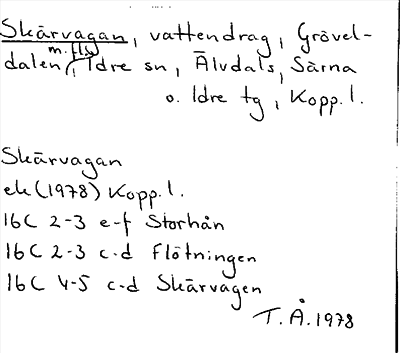 Skärvagan, vattendrag, Grövel-
m. fl.
dalen, Idre sn, Älvdals, Särna
o. Idre tg, Kopp.l.
Skärvagan
ek (1978) Kopp.l.
16C 2-3 e-f Storhån
16C 2-3 c-d Flötningen
16C 4-5 c-d Skärvagen
T.Å.1978